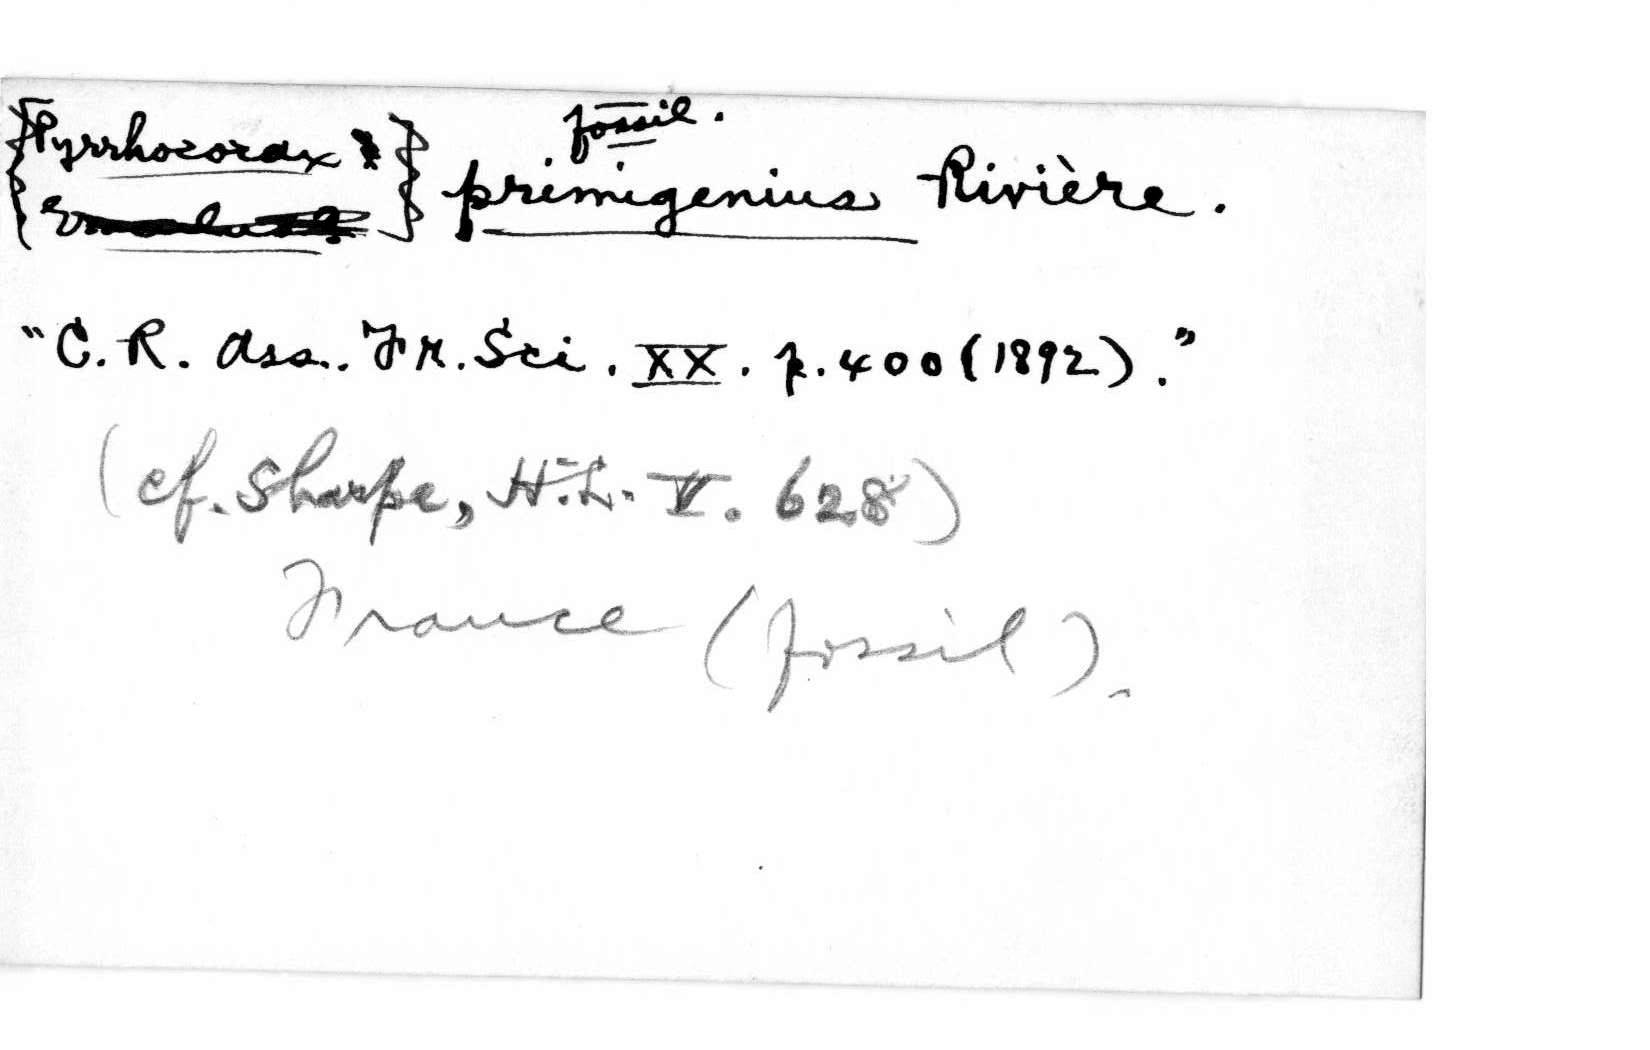 fossil.
{Pyrrhocorax} primigenius Rivière.
"C. R. Ass. Fr. Sci. XX. p. 400 (1892)."
(cf. Sharpe, H.L. V. 628)
France (fossil).